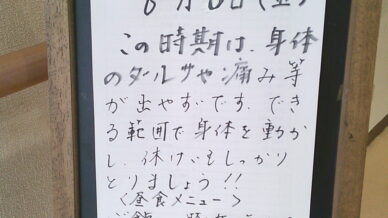 この時期は、身体
のダルサや痛み等
が出やすいです。でき
る範囲で身体を動か
し、休けいもしっかり
とりましょう!!
〈昼食メニュー〉